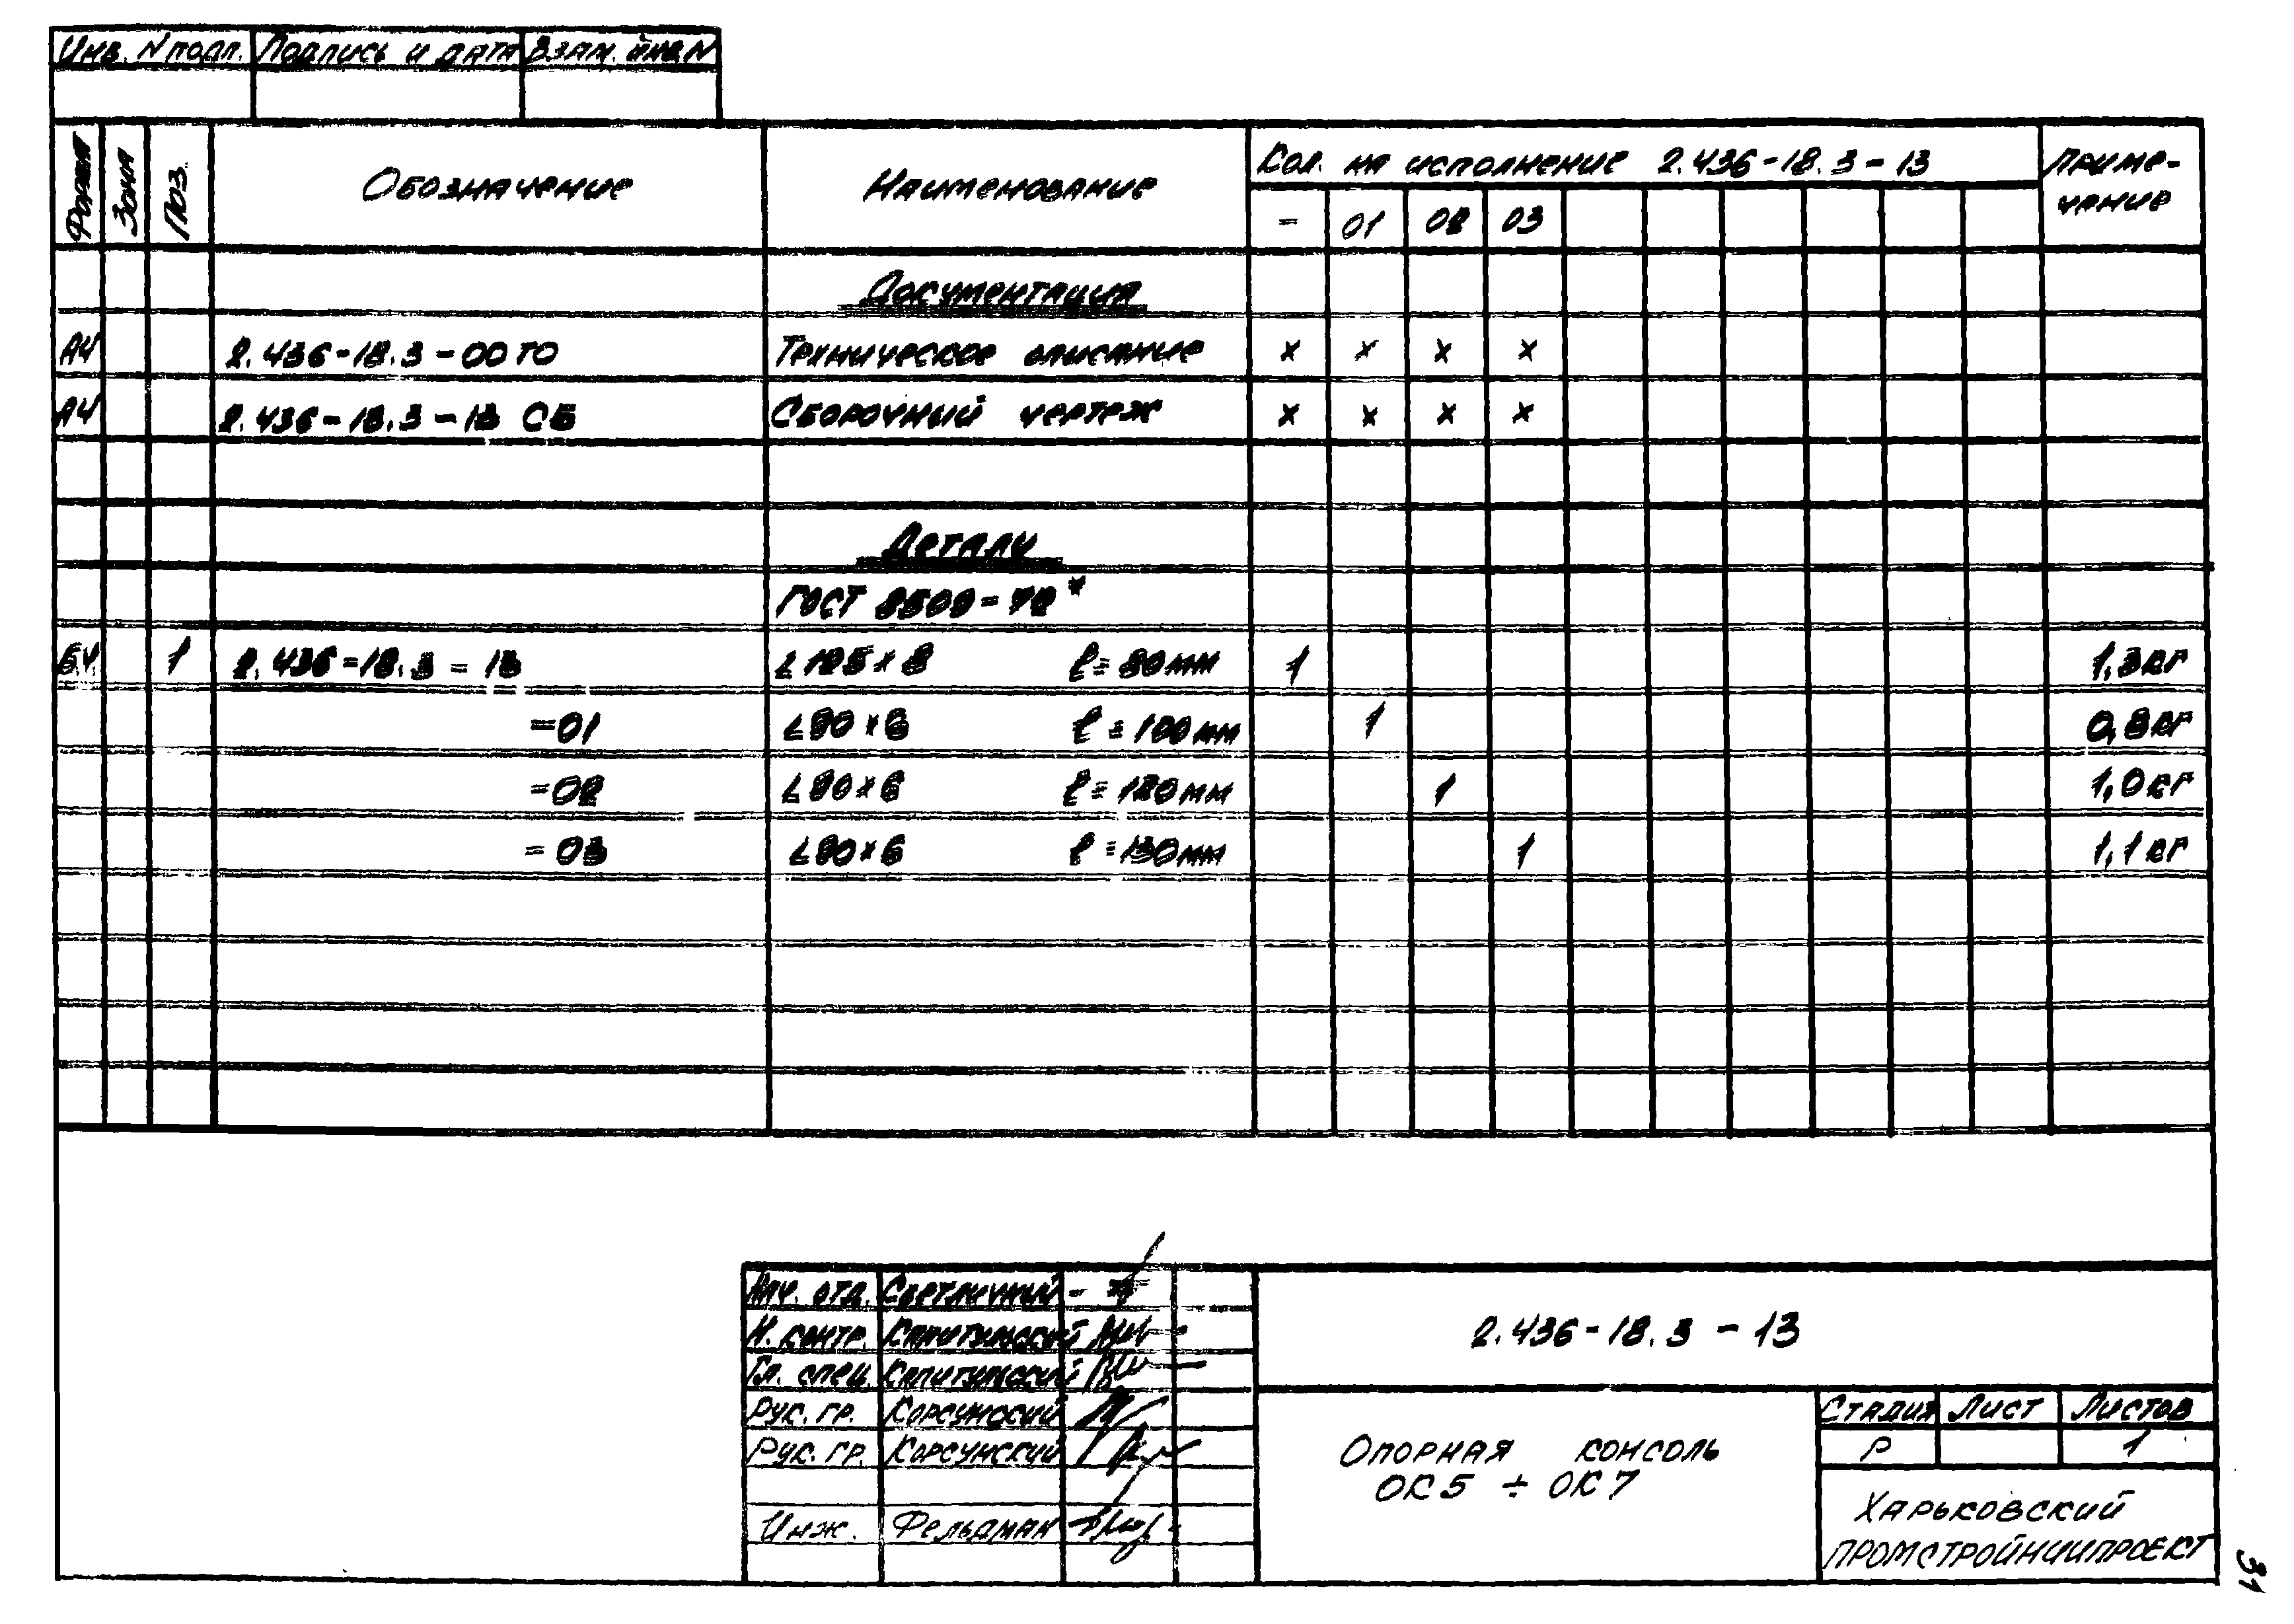 Инв. N подл. Подпись и дата Взам. инв. N
Формат Зона Поз. Обозначение Наименование Кол. на исполнение 2.436-18.3-13 Приме-
чание
- 01 02 03
Документация
А4 2.436-18.3-00 ТО Техническое описание х х х х
А4 2.436-18.3-13 СБ Сборочный чертеж х х х х
Детали
ГОСТ 8509-72*
Б.Ч. 1 2.436-18.3-13 L 125×8 ℓ=80мм 1 1,3кг
-01 L 90×6 ℓ=100мм 1 0,8кг
-02 L 90×6 ℓ=120мм 1 1,0кг
-03 L 90×6 ℓ=130мм 1 1,1кг
Нач. отд. Светличный
Н. контр. Капитульский
Гл. спец. Капитульский
Рук. гр. Корсунский
Рук. гр. Корсунский
Инж. Фельдман
2.436-18.3-13
Опорная консоль
ОК5 ÷ ОК7
Стадия Лист Листов
Р 1
Харьковский
ПРОМСТРОЙНИИПРОЕКТ
31